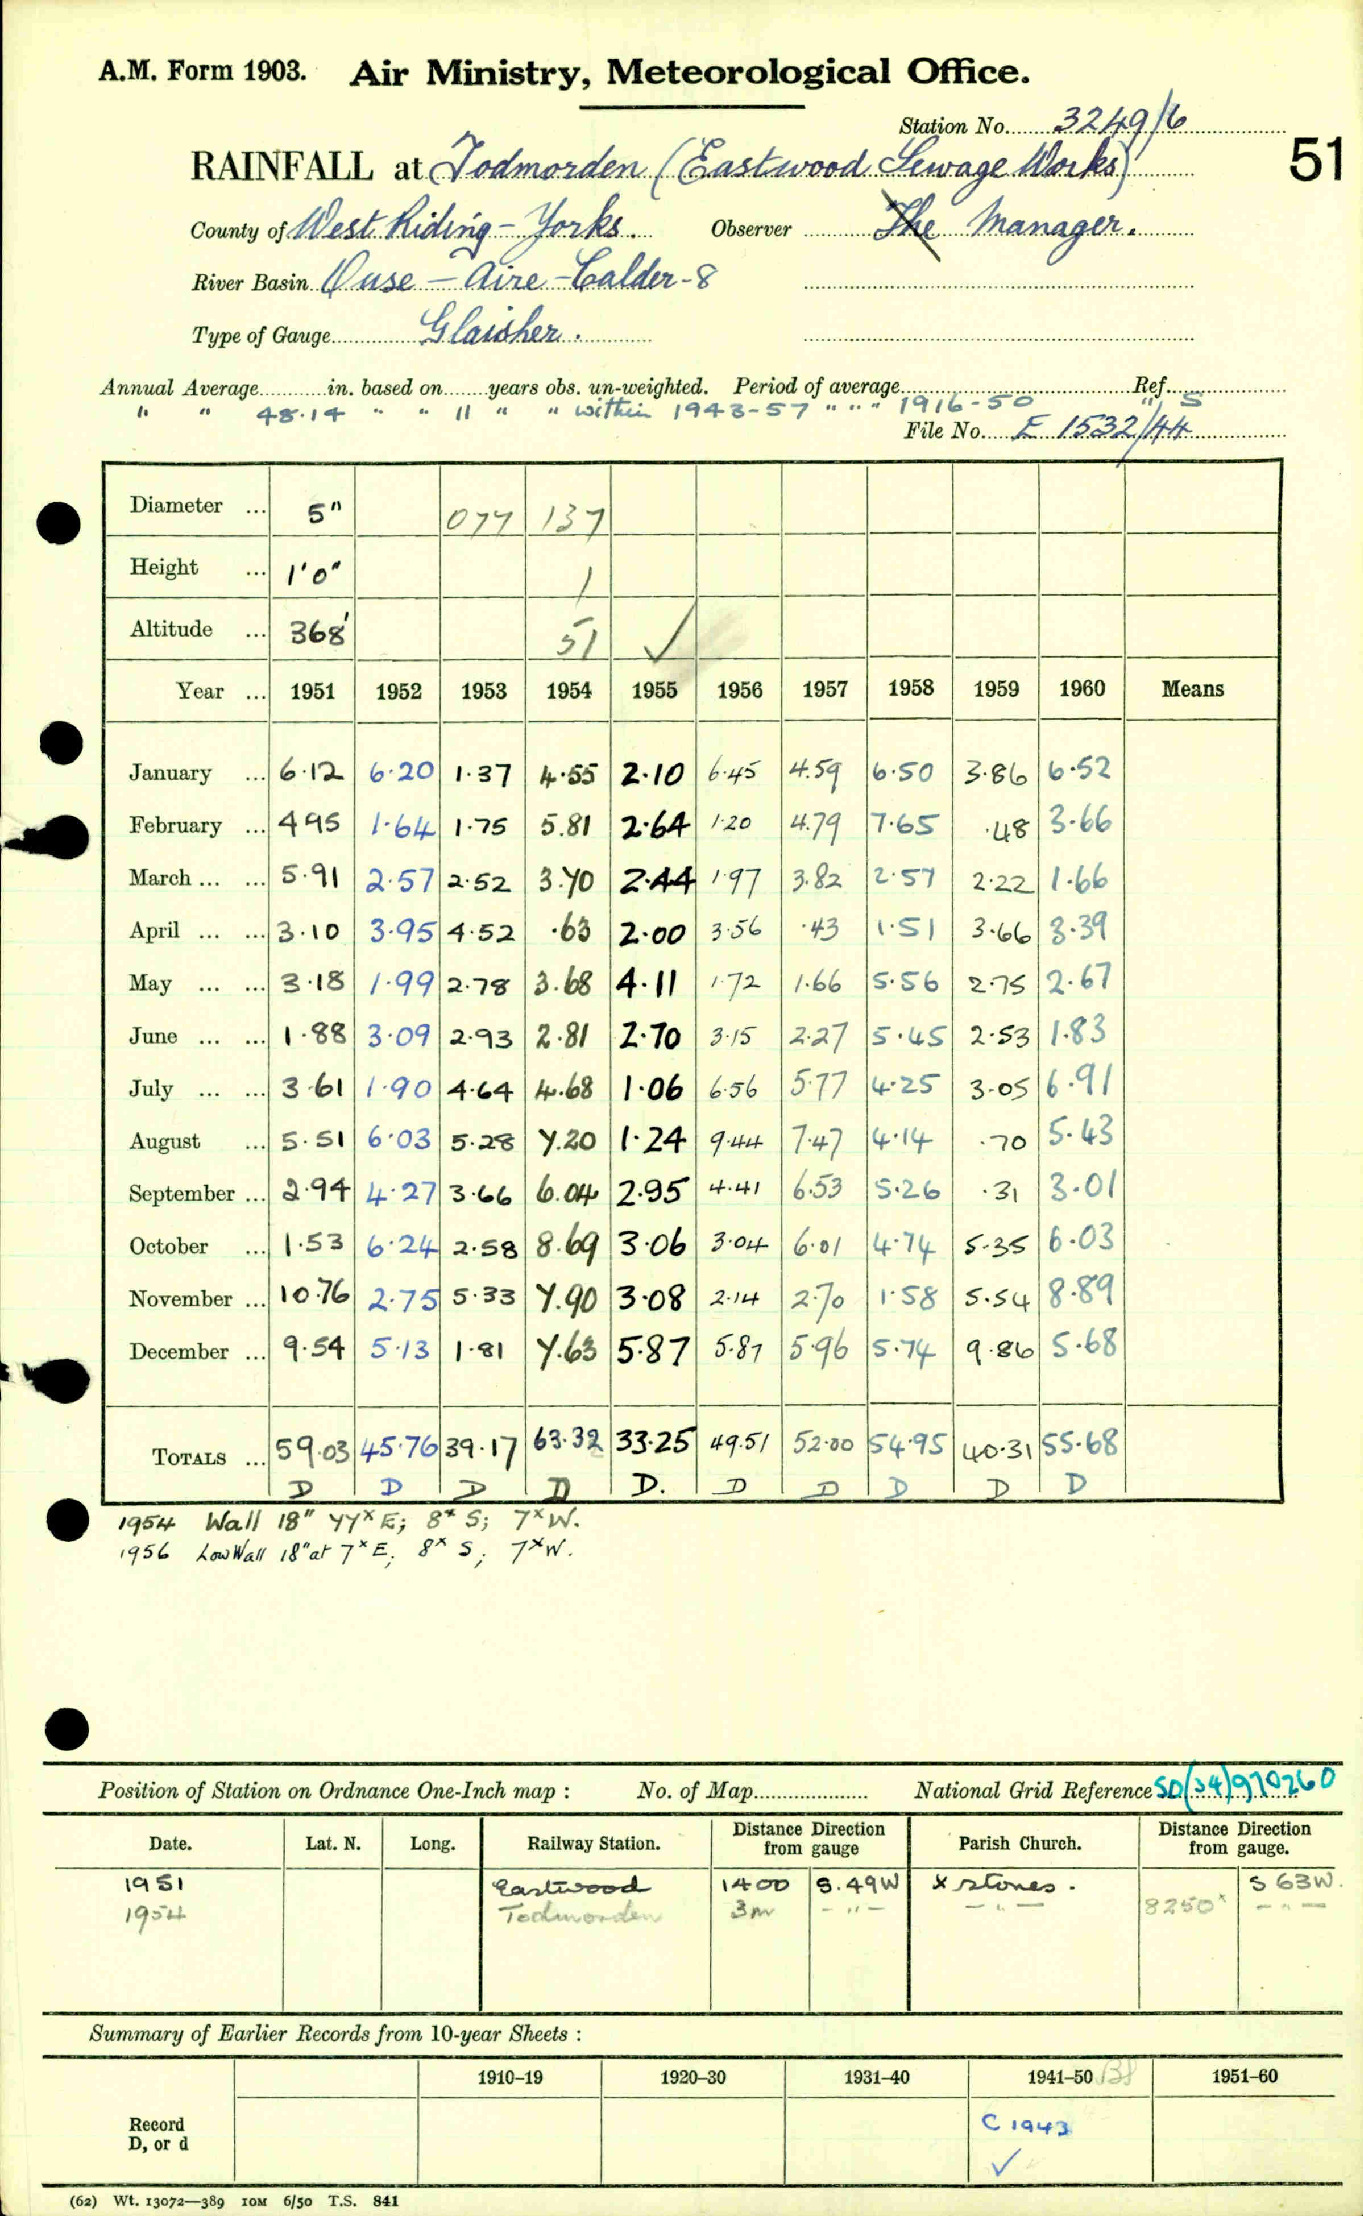 A.M. Form 1903. Air Ministry, Meteorological Office.
Station No. 3249/6
RAINFALL at Todmorden (Eastwood Sewage Works) 51
County of West Riding - Yorks. Observer The Manager.
River Basin Ouse - Aire - Calder - 8
Type of Gauge Glaisher.
Annual Average in. based on years obs. un-weighted. Period of average Ref.
" " 48.14 " " 11 " " within 1943-57 " " " 1916-50 " S
File No. E 1532/44
Diameter ... 5" 077 137
Height ... 1'0" 1
Altitude ... 368' 51 ✓
Year ... 1951 1952 1953 1954 1955 1956 1957 1958 1959 1960 Means
January ... 6.12 6.20 1.37 4.55 2.10 6.45 4.59 6.50 3.86 6.52
February ... 4.95 1.64 1.75 5.81 2.64 1.20 4.79 7.65 .48 3.66
March ... ... 5.91 2.57 2.52 3.70 2.44 1.97 3.82 2.57 2.22 1.66
April ... ... 3.10 3.95 4.52 .63 2.00 3.56 .43 1.51 3.66 3.39
May ... ... 3.18 1.99 2.78 3.68 4.11 1.72 1.66 5.56 2.75 2.67
June ... ... 1.88 3.09 2.93 2.81 2.70 3.15 2.27 5.45 2.53 1.83
July ... ... 3.61 1.90 4.64 4.68 1.06 6.56 5.77 4.25 3.05 6.91
August ... 5.51 6.03 5.28 7.20 1.24 9.44 7.47 4.14 .70 5.43
September ... 2.94 4.27 3.66 6.04 2.95 4.41 6.53 5.26 .31 3.01
October ... 1.53 6.24 2.58 8.69 3.06 3.04 6.01 4.74 5.35 6.03
November ... 10.76 2.75 5.33 7.90 3.08 2.14 2.70 1.58 5.54 8.89
December ... 9.54 5.13 1.81 7.63 5.87 5.87 5.96 5.74 9.86 5.68
TOTALS ... 59.03 45.76 39.17 63.32 33.25 49.51 52.00 54.95 40.31 55.68
D D D D D. D D D D D
1954 Wall 18" 77ˣ E; 8ˣ S; 7ˣ W.
1956 Low Wall 18" at 7ˣ E; 8ˣ S; 7ˣ W.
Position of Station on Ordnance One-Inch map : No. of Map National Grid Reference SD(34)970260
Date. Lat. N. Long. Railway Station. Distance from Direction gauge Parish Church. Distance from Direction gauge.
1951 Eastwood 1400 S.49W X stones. S 63W.
1954 Todmorden 3m - " - - " - 8250ˣ - " -
Summary of Earlier Records from 10-year Sheets :
1910-19 1920-30 1931-40 1941-50 1951-60
Record
D, or d
C 1943
✓
(62) Wt. 13072—389 10M 6/50 T.S. 841